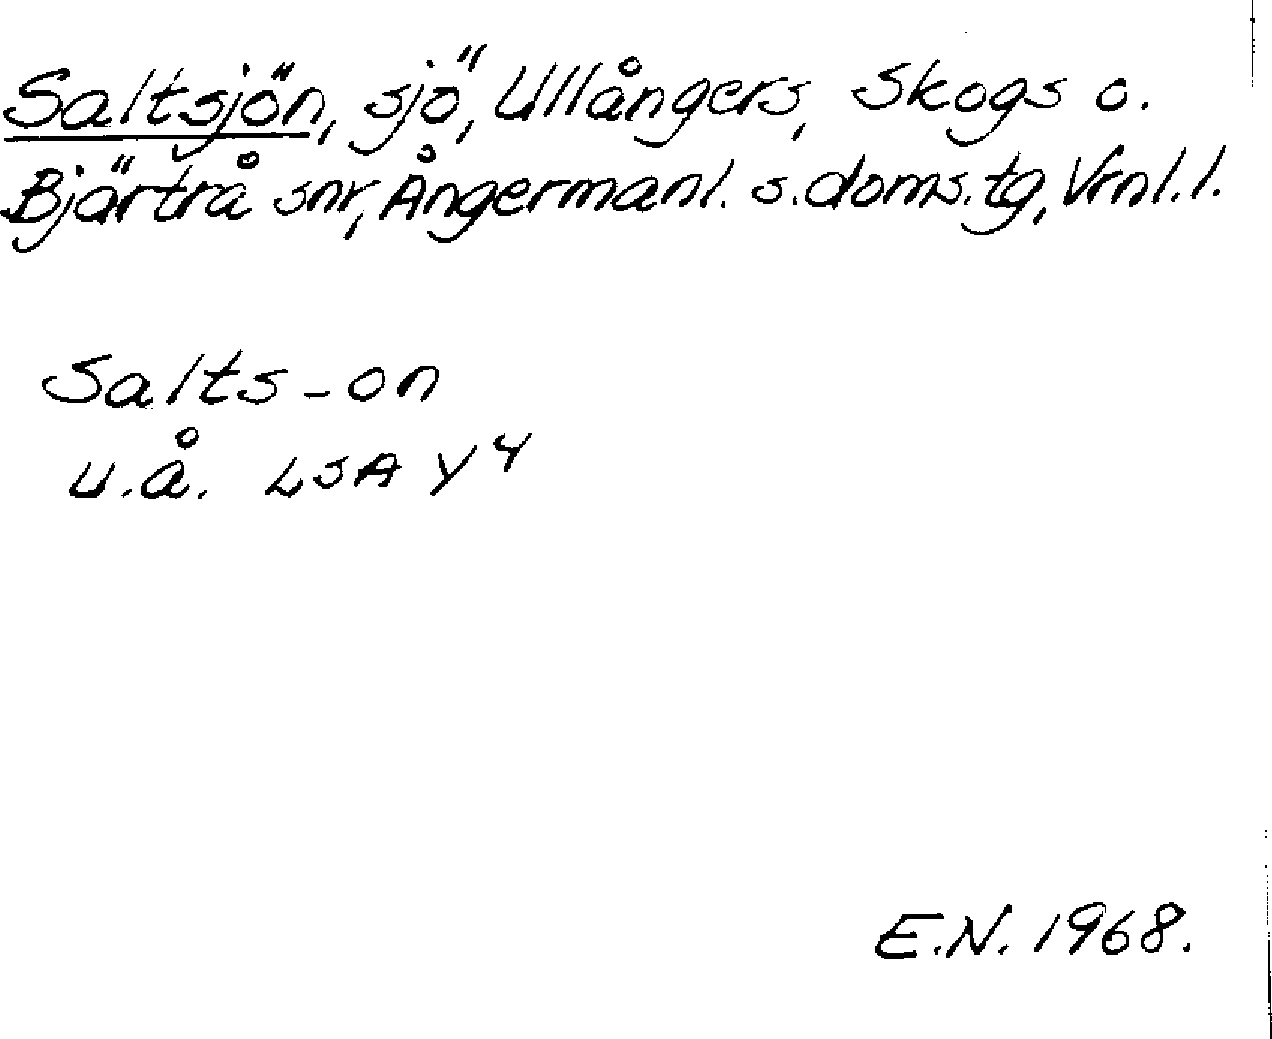 Saltsjön, sjö, Ullångers, Skogs o.
Bjärtrå snr, Ångermanl. s. doms. tg, Vrnl. l.
Salts-on
u.å. LSA Y 4
E.N. 1968.